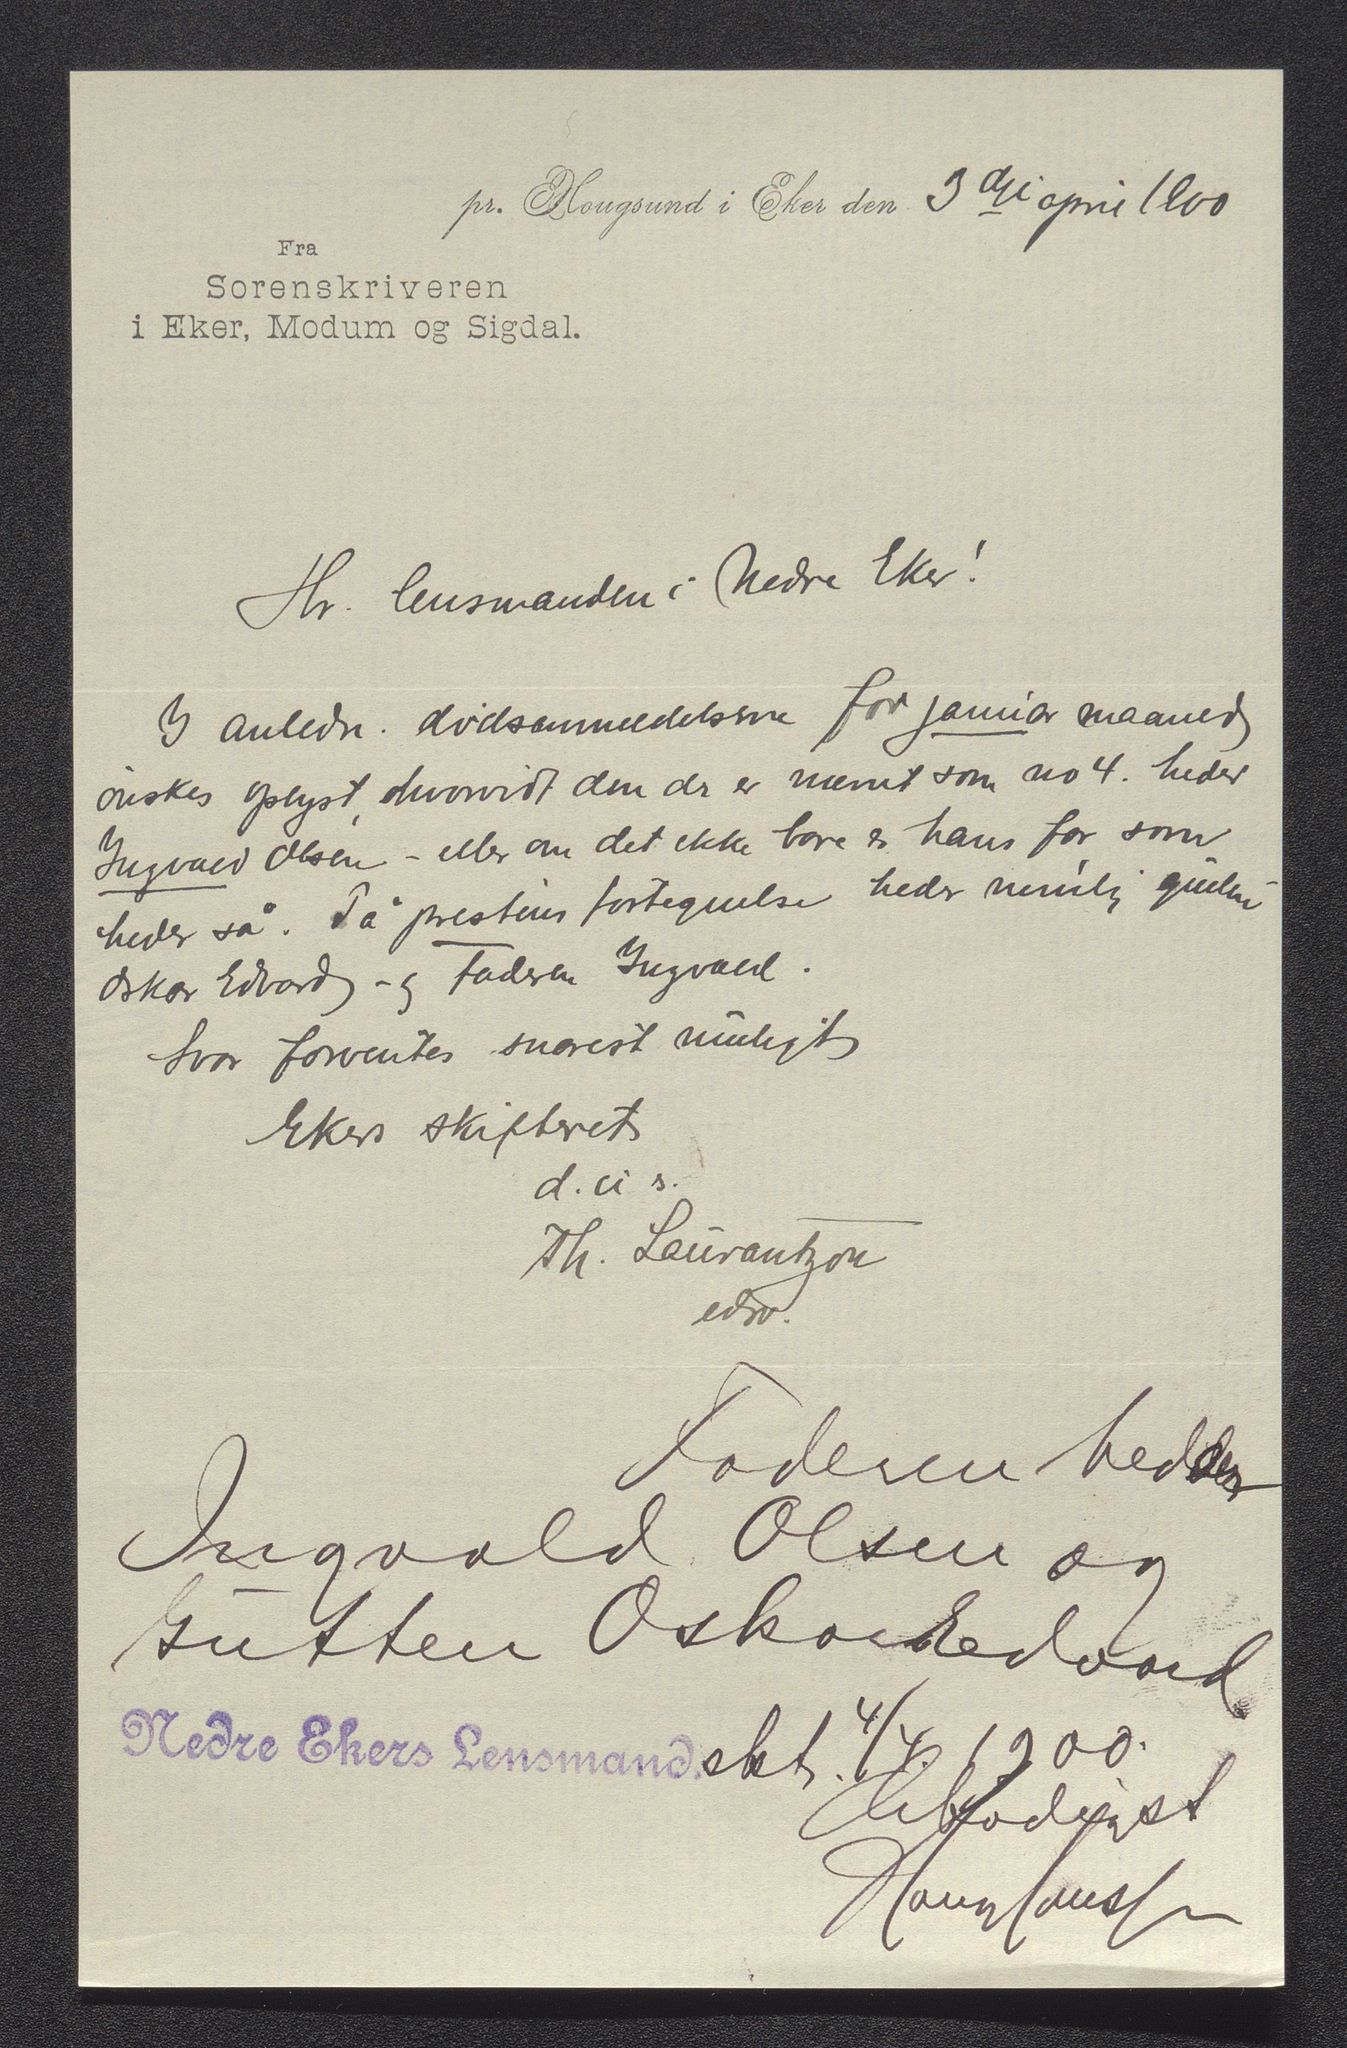 pr. Hougsund i Eker den 3dje april 1900
Fra
Sorenskriveren
i Eker, Modum og Sigdal.
Hr. lensmanden i Nedre Eker!
I anledn. dødsanmeldelserne for januar maaned
ønskes oplyst, hvorvidt den der er nævnt som no 4. heder
Ingvald Olsen - eller om det ikke bare er hans far som
heder så. På prestens fortegnelse heder nemlig gutten
Oskar Edvard - og Faderen Ingvald.
Svar forventes snarest muligt
Ekers skifteret
d. u s.
Th. Laurantzon
edsv.
Faderen hedder
Ingvald Olsen og
Gutten Oskar Edvard
Nedre Ekers Lensmand.skt. 4/4. 1900.
Ærbødigst